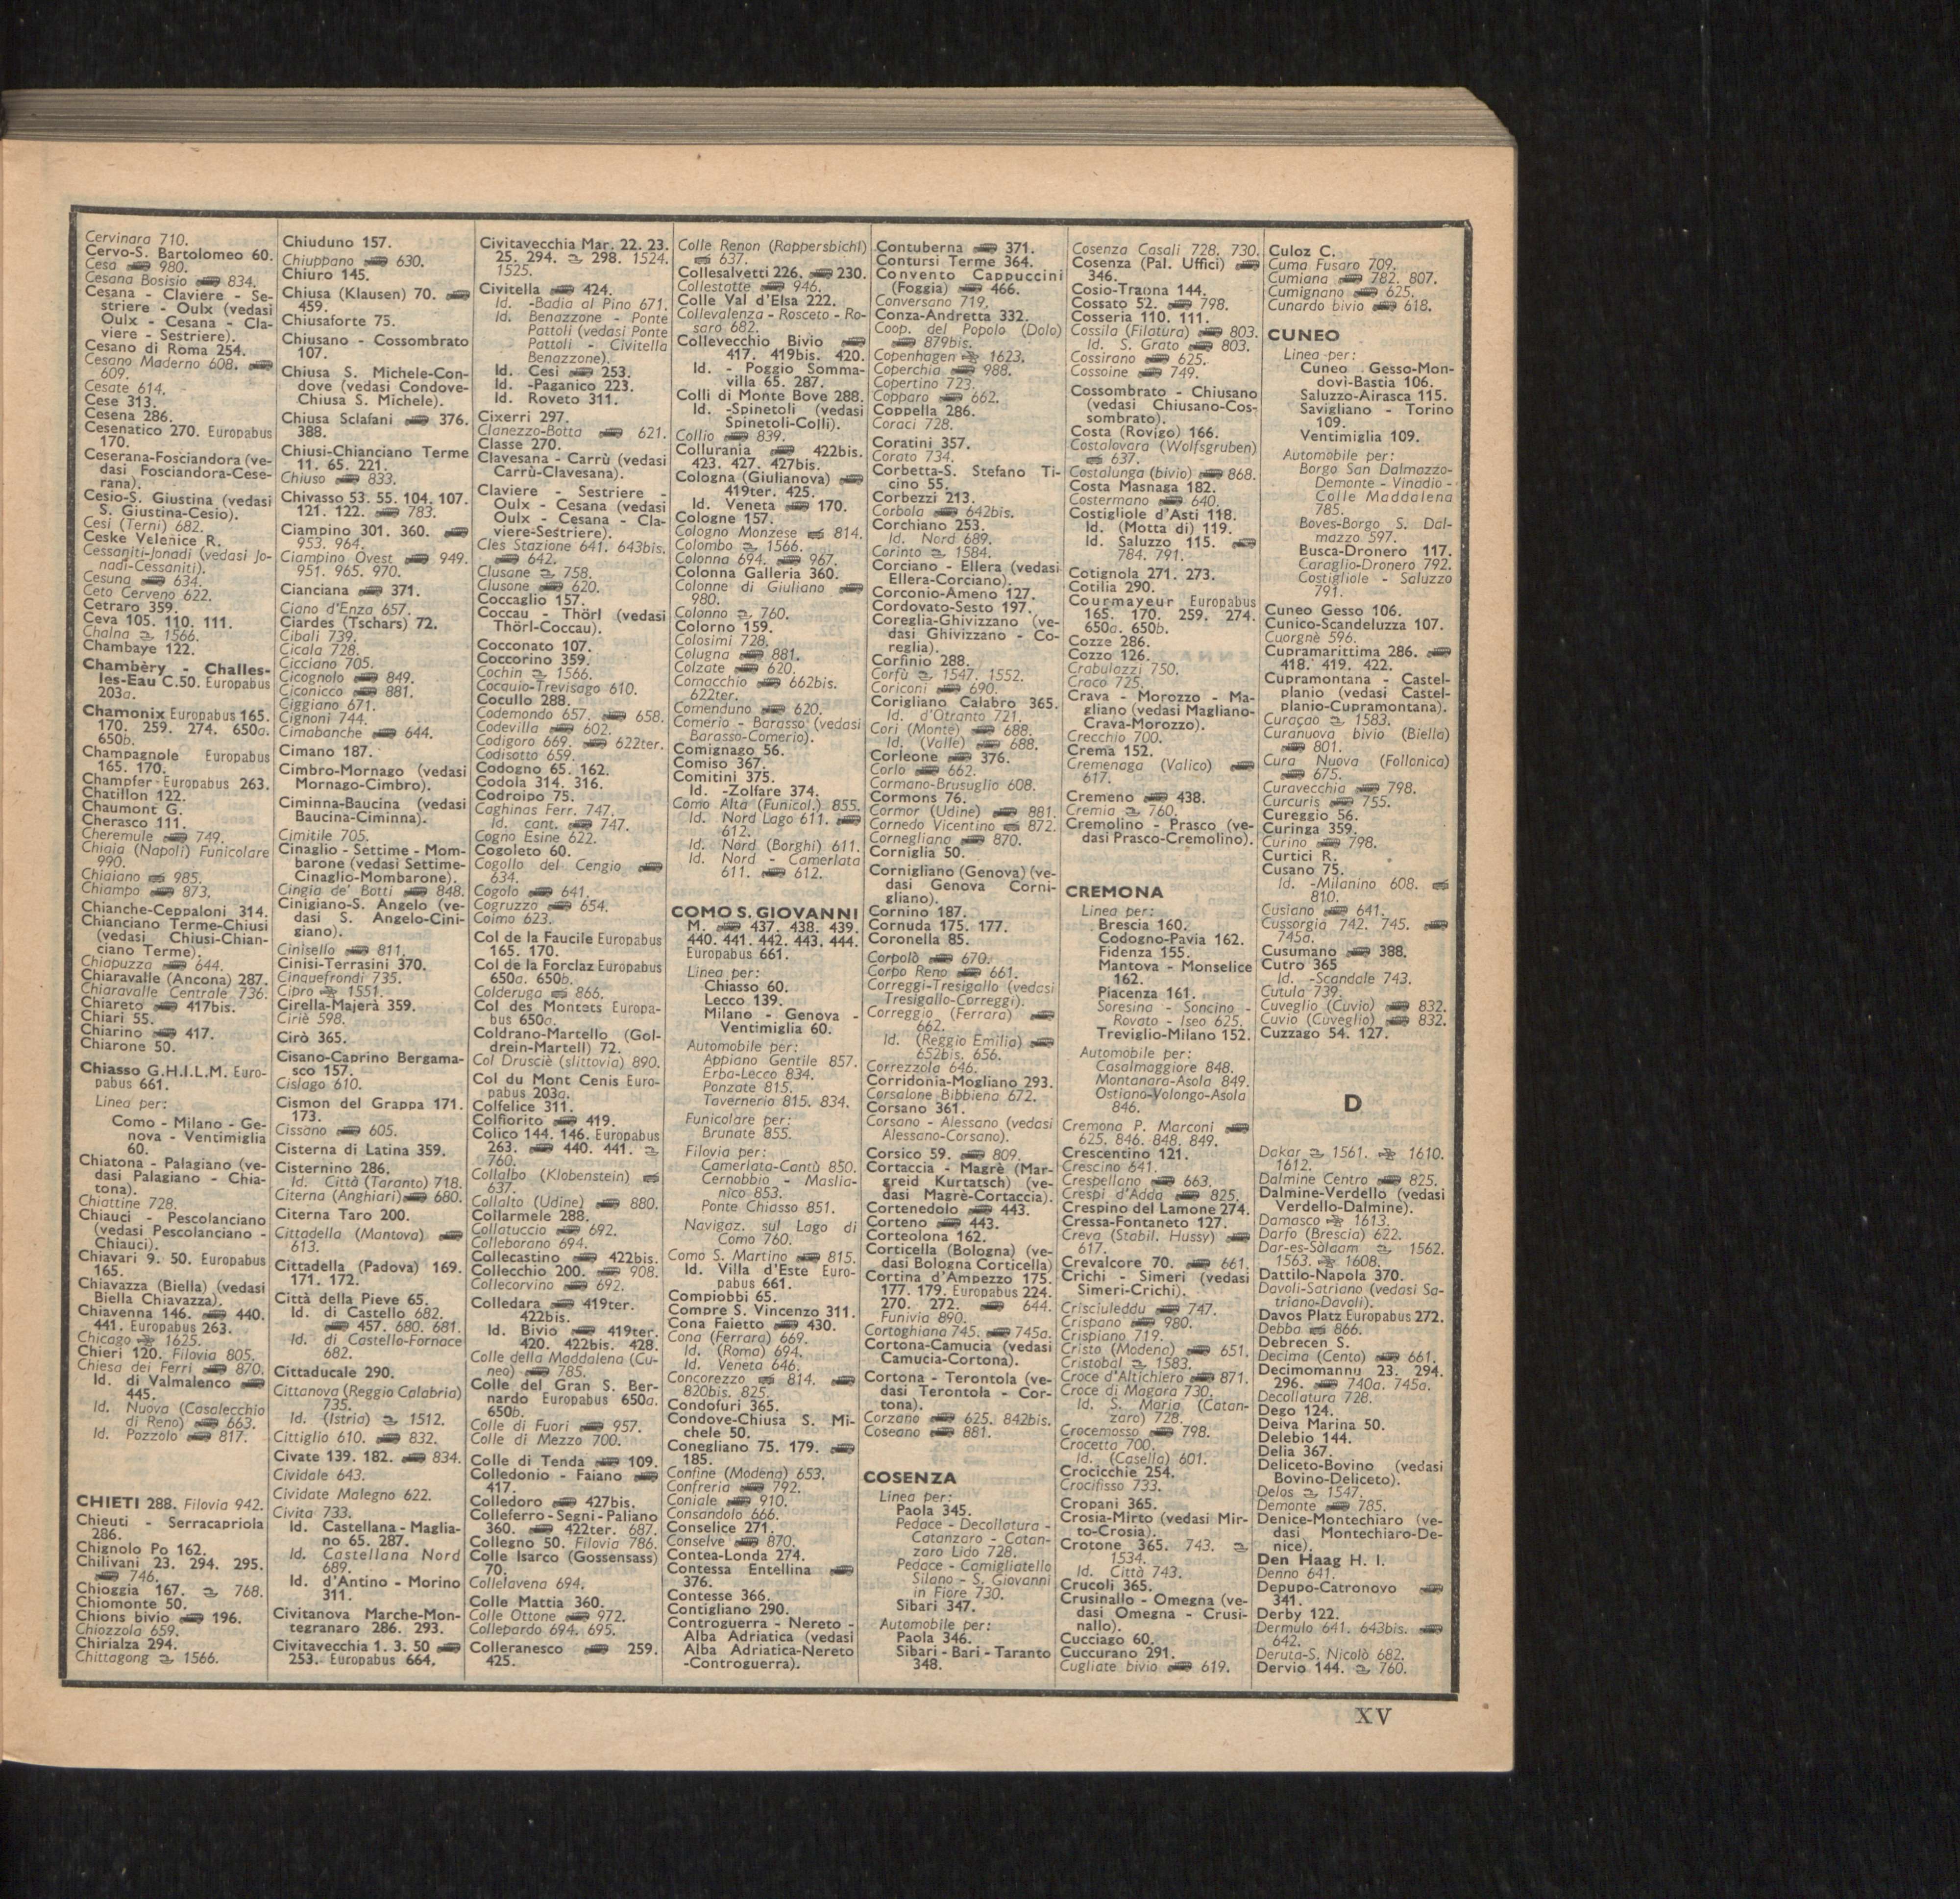 Cervinara 710.
Cervo-S. Bartolomeo 60.
Cesa 980.
Cesana Bosisio 834.
Cesana - Claviere - Se-
striere - Oulx (vedasi
Oulx - Cesana - Cla-
viere - Sestriere).
Cesano di Roma 254.
Cesano Maderno 608.
609.
Cesate 614.
Cese 313.
Cesena 286.
Cesenatico 270. Europabus
170.
Ceserana-Fosciandora (ve-
dasi Fosciandora-Cese-
rana).
Cesio-S. Giustina (vedasi
S. Giustina-Cesio).
Cesi (Terni) 682.
Ceske Velenice R.
Cessaniti-Jonadi (vedasi Jo-
nadi-Cessaniti).
Cesuna 634.
Ceto Cerveno 622.
Cetraro 359.
Ceva 105. 110. 111.
Chalna 1566.
Chambaye 122.
Chambèry - Challes-
les-Eau C.50. Europabus
203a.
Chamonix Europabus 165.
170. 259. 274. 650a.
650b.
Champagnole Europabus
165. 170.
Champfer Europabus 263.
Chatillon 122.
Chaumont G.
Cherasco 111.
Cheremule 749.
Chiaia (Napoli) Funicolare
990.
Chiaiano 985.
Chiampo 873.
Chianche-Ceppaloni 314.
Chianciano Terme-Chiusi
(vedasi Chiusi-Chian-
ciano Terme).
Chiapuzza 644.
Chiaravalle (Ancona) 287.
Chiaravalle Centrale 736.
Chiareto 417bis.
Chiari 55.
Chiarino 417.
Chiarone 50.
Chiasso G.H.I.L.M. Euro-
pabus 661.
Linea per:
Como - Milano - Ge-
nova - Ventimiglia
60.
Chiatona - Palagiano (ve-
dasi Palagiano - Chia-
tona).
Chiattine 728.
Chiauci - Pescolanciano
(vedasi Pescolanciano -
Chiauci).
Chiavari 9. 50. Europabus
165.
Chiavazza (Biella) (vedasi
Biella Chiavazza).
Chiavenna 146. 440.
441. Europabus 263.
Chicago 1625.
Chieri 120. Filovia 805.
Chiesa dei Ferri 870.
Id. di Valmalenco
445.
Id. Nuova (Casalecchio
di Reno) 663.
Id. Pozzolo 817.
CHIETI 288. Filovia 942.
Chieuti - Serracapriola
286.
Chignolo Po 162.
Chilivani 23. 294. 295.
746.
Chioggia 167. 768.
Chiomonte 50.
Chions bivio 196.
Chiozzola 659.
Chirialza 294.
Chittagong 1566.
Chiuduno 157.
Chiuppano 630.
Chiuro 145.
Chiusa (Klausen) 70.
459.
Chiusaforte 75.
Chiusano - Cossombrato
107.
Chiusa S. Michele-Con-
dove (vedasi Condove-
Chiusa S. Michele).
Chiusa Sclafani 376.
388.
Chiusi-Chianciano Terme
11. 65. 221.
Chiuso 833.
Chivasso 53. 55. 104. 107.
121. 122. 783.
Ciampino 301. 360.
953. 964.
Ciampino Ovest 949.
951. 965. 970.
Cianciana 371.
Ciano d'Enza 657.
Ciardes (Tschars) 72.
Cibali 739.
Cicala 728.
Cicciano 705.
Cicognolo 849.
Ciconicco 881.
Ciggiano 671.
Cignoni 744.
Cimabanche 644.
Cimano 187.
Cimbro-Mornago (vedasi
Mornago-Cimbro).
Ciminna-Baucina (vedasi
Baucina-Ciminna).
Cimitile 705.
Cinaglio - Settime - Mom-
barone (vedasi Settime-
Cinaglio-Mombarone).
Cingia de' Botti 848.
Cinigiano-S. Angelo (ve-
dasi S. Angelo-Cini-
giano).
Cinisello 811.
Cinisi-Terrasini 370.
Cinquefrondi 735.
Cipro 1551.
Cirella-Majerà 359.
Ciriè 598.
Cirò 365.
Cisano-Caprino Bergama-
sco 157.
Cislago 610.
Cismon del Grappa 171.
173.
Cissano 605.
Cisterna di Latina 359.
Cisternino 286.
Id. Città (Taranto) 718.
Citerna (Anghiari) 680.
Citerna Taro 200.
Cittadella (Mantova)
613.
Cittadella (Padova) 169.
171. 172.
Città della Pieve 65.
Id. di Castello 682.
457. 680. 681.
Id. di Castello-Fornace
682.
Cittaducale 290.
Cittanova (Reggio Calabria)
735.
Id. (Istria) 1512.
Cittiglio 610. 832.
Civate 139. 182. 834.
Cividale 643.
Cividate Malegno 622.
Civita 733.
Id. Castellana - Maglia-
no 65. 287.
Id. Castellana Nord
689.
Id. d'Antino - Morino
311.
Civitanova Marche-Mon-
tegranaro 286. 293.
Civitavecchia 1. 3. 50
253. Europabus 664.
Civitavecchia Mar. 22. 23.
25. 294. 298. 1524.
1525.
Civitella 424.
Id. -Badia al Pino 671.
Id. Benazzone - Ponte
Pattoli (vedasi Ponte
Pattoli - Civitella
Benazzone).
Id. Cesi 253.
Id. -Paganico 223.
Id. Roveto 311.
Cixerri 297.
Clanezzo-Botta 621.
Classe 270.
Clavesana - Carrù (vedasi
Carrù-Clavesana).
Claviere - Sestriere -
Oulx - Cesana (vedasi
Oulx - Cesana - Cla-
viere-Sestriere).
Cles Stazione 641. 643bis.
642.
Clusane 758.
Clusone 620.
Coccaglio 157.
Coccau - Thörl (vedasi
Thörl-Coccau).
Cocconato 107.
Coccorino 359.
Cochin 1566.
Cocquio-Trevisago 610.
Cocullo 288.
Codemondo 657. 658.
Codevilla 602.
Codigoro 669. 622ter.
Codisotto 659.
Codogno 65. 162.
Codola 314. 316.
Codroipo 75.
Coghinas Ferr. 747.
Id. cant. 747.
Cogno Esine 622.
Cogoleto 60.
Cogollo del Cengio
634.
Cogolo 641.
Cogruzzo 654.
Coimo 623.
Col de la Faucile Europabus
165. 170.
Col de la Forclaz Europabus
650a. 650b.
Colderuga 866.
Col des Montets Europa-
bus 650a.
Coldrano-Martello (Gol-
drein-Martell) 72.
Col Drusciè (slittovia) 890.
Col du Mont Cenis Euro-
pabus 203a.
Colfelice 311.
Colfiorito 419.
Colico 144. 146. Europabus
263. 440. 441.
760.
Collalbo (Klobenstein)
637.
Collalto (Udine) 880.
Collarmele 288.
Collatuccio 692.
Colleborano 694.
Collecastino 422bis.
Collecchio 200. 908.
Collecorvino 692.
Colledara 419ter.
422bis.
Id. Bivio 419ter.
420. 422bis. 428.
Colle della Maddalena (Cu-
neo) 785.
Colle del Gran S. Ber-
nardo Europabus 650a.
650b.
Colle di Fuori 957.
Colle di Mezzo 700.
Colle di Tenda 109.
Colledonio - Faiano
417.
Colledoro 427bis.
Colleferro - Segni - Paliano
360. 422ter. 687.
Collegno 50. Filovia 786.
Colle Isarco (Gossensass)
70.
Collelavena 694.
Colle Mattia 360.
Colle Ottone 972.
Collepardo 694. 695.
Colleranesco 259.
425.
Colle Renon (Rappersbichl)
637.
Collesalvetti 226. 230.
Collestatte 946.
Colle Val d'Elsa 222.
Collevalenza - Rosceto - Ro-
saro 682.
Collevecchio Bivio
417. 419bis. 420.
Id. - Poggio Somma-
villa 65. 287.
Colli di Monte Bove 288.
Id. -Spinetoli (vedasi
Spinetoli-Colli).
Collio 839.
Collurania 422bis.
423. 427. 427bis.
Cologna (Giulianova)
419ter. 425.
Id. Veneta 170.
Cologne 157.
Cologno Monzese 814.
Colombo 1566.
Colonna 694. 967.
Colonna Galleria 360.
Colonne di Giuliano
980.
Colonno 760.
Colorno 159.
Colosimi 728.
Colugna 881.
Colzate 620.
Comacchio 662bis.
622ter.
Comenduno 620.
Comerio - Barasso (vedasi
Barasso-Comerio).
Comignago 56.
Comiso 367.
Comitini 375.
Id. -Zolfare 374.
Como Alta (Funicol.) 855.
Id. Nord Lago 611.
612.
Id. Nord (Borghi) 611.
Id. Nord - Camerlata
611. 612.
COMO S. GIOVANNI
M. 437. 438. 439.
440. 441. 442. 443. 444.
Europabus 661.
Linea per:
Chiasso 60.
Lecco 139.
Milano - Genova -
Ventimiglia 60.
Automobile per:
Appiano Gentile 857.
Erba-Lecco 834.
Ponzate 815.
Tavernerio 815. 834.
Funicolare per:
Brunate 855.
Filovia per:
Camerlata-Cantù 850.
Cernobbio - Maslia-
nico 853.
Ponte Chiasso 851.
Navigaz. sul Lago di
Como 760.
Como S. Martino 815.
Id. Villa d'Este Euro-
pabus 661.
Compiobbi 65.
Compre S. Vincenzo 311.
Cona Faietto 430.
Cona (Ferrara) 669.
Id. (Roma) 694.
Id. Veneta 646.
Concorezzo 814.
820bis. 825.
Condofuri 365.
Condove-Chiusa S. Mi-
chele 50.
Conegliano 75. 179.
185.
Confine (Modena) 653.
Confreria 792.
Coniale 910.
Consandolo 666.
Conselice 271.
Conselve 870.
Contea-Londa 274.
Contessa Entellina
376.
Contesse 366.
Contigliano 290.
Controguerra - Nereto -
Alba Adriatica (vedasi
Alba Adriatica-Nereto
-Controguerra).
Contuberna 371.
Contursi Terme 364.
Convento Cappuccini
(Foggia) 466.
Conversano 719.
Conza-Andretta 332.
Coop. del Popolo (Dolo)
879bis.
Copenhagen 1623.
Coperchia 988.
Copertino 723.
Copparo 662.
Coppella 286.
Coraci 728.
Coratini 357.
Corato 734.
Corbetta-S. Stefano Ti-
cino 55.
Corbezzi 213.
Corbola 642bis.
Corchiano 253.
Id. Nord 689.
Corinto 1584.
Corciano - Ellera (vedasi
Ellera-Corciano).
Corconio-Ameno 127.
Cordovato-Sesto 197.
Coreglia-Ghivizzano (ve-
dasi Ghivizzano - Co-
reglia).
Corfinio 288.
Corfù 1547. 1552.
Coriconi 690.
Corigliano Calabro 365.
Id. d'Otranto 721.
Cori (Monte) 688.
Id. (Valle) 688.
Corleone 376.
Corlo 662.
Cormano-Brusuglio 608.
Cormons 76.
Cormor (Udine) 881.
Cornedo Vicentino 872.
Cornegliano 870.
Corniglia 50.
Cornigliano (Genova) (ve-
dasi Genova Corni-
gliano).
Cornino 187.
Cornuda 175. 177.
Coronella 85.
Corpolò 670.
Corpo Reno 661.
Correggi-Tresigallo (vedasi
Tresigallo-Correggi).
Correggio (Ferrara)
662.
Id. (Reggio Emilia)
652bis. 656.
Correzzola 646.
Corridonia-Mogliano 293.
Corsalone Bibbiena 672.
Corsano 361.
Corsano - Alessano (vedasi
Alessano-Corsano).
Corsico 59. 809.
Cortaccia - Magrè (Mar-
greid Kurtatsch) (ve-
dasi Magrè-Cortaccia).
Cortenedolo 443.
Corteno 443.
Corteolona 162.
Corticella (Bologna) (ve-
dasi Bologna Corticella)
Cortina d'Ampezzo 175.
177. 179. Europabus 224.
270. 272. 644.
Funivia 890.
Cortoghiana 745. 745a.
Cortona-Camucia (vedasi
Camucia-Cortona).
Cortona - Terontola (ve-
dasi Terontola - Cor-
tona).
Corzano 625. 842bis.
Coseano 881.
COSENZA
Linea per:
Paola 345.
Pedace - Decollatura -
Catanzaro - Catan-
zaro Lido 728.
Pedace - Camigliatello
Silano - S. Giovanni
in Fiore 730.
Sibari 347.
Automobile per:
Paola 346.
Sibari - Bari - Taranto
348.
Cosenza Casali 728. 730.
Cosenza (Pal. Uffici)
346.
Cosio-Traona 144.
Cossato 52. 798.
Cosseria 110. 111.
Cossila (Filatura) 803.
Id. S. Grato 803.
Cossirano 625.
Cossoine 749.
Cossombrato - Chiusano
(vedasi Chiusano-Cos-
sombrato).
Costa (Rovigo) 166.
Costalovara (Wolfsgruben)
637.
Costalunga (bivio) 868.
Costa Masnaga 182.
Costermano 640.
Costigliole d'Asti 118.
Id. (Motta di) 119.
Id. Saluzzo 115.
784. 791.
Cotignola 271. 273.
Cotilia 290.
Courmayeur Europabus
165. 170. 259. 274.
650a. 650b.
Cozze 286.
Cozzo 126.
Crabulazzi 750.
Craco 725.
Crava - Morozzo - Ma-
gliano (vedasi Magliano-
Crava-Morozzo).
Crecchio 700.
Crema 152.
Cremenaga (Valico)
617.
Cremeno 438.
Cremia 760.
Cremolino - Prasco (ve-
dasi Prasco-Cremolino).
CREMONA
Linea per:
Brescia 160.
Codogno-Pavia 162.
Fidenza 155.
Mantova - Monselice
162.
Piacenza 161.
Soresina - Soncino -
Rovato - Iseo 625.
Treviglio-Milano 152.
Automobile per:
Casalmaggiore 848.
Montanara-Asola 849.
Ostiano-Volongo-Asola
846.
Cremona P. Marconi
625. 846. 848. 849.
Crescentino 121.
Crescino 641.
Crespellano 663.
Crespi d'Adda 825.
Crespino del Lamone 274.
Cressa-Fontaneto 127.
Creva (Stabil. Hussy)
617.
Crevalcore 70. 661.
Crichi - Simeri (vedasi
Simeri-Crichi).
Crisciuleddu 747.
Crispano 980.
Crispiano 719.
Cristo (Modena) 651.
Cristobal 1583.
Croce d'Altichiero 871.
Croce di Magara 730.
Id. S. Maria (Catan-
zaro) 728.
Crocemosso 798.
Crocetta 700.
Id. (Casella) 601.
Crocicchie 254.
Crocifisso 733.
Cropani 365.
Crosia-Mirto (vedasi Mir-
to-Crosia).
Crotone 365. 743.
1534.
Id. Città 743.
Crucoli 365.
Crusinallo - Omegna (ve-
dasi Omegna - Crusi-
nallo).
Cucciago 60.
Cuccurano 291.
Cugliate bivio 619.
Culoz C.
Cuma Fusaro 709.
Cumiana 782. 807.
Cumignano 625.
Cunardo bivio 618.
CUNEO
Linea per:
Cuneo Gesso-Mon-
dovì-Bastia 106.
Saluzzo-Airasca 115.
Savigliano - Torino
109.
Ventimiglia 109.
Automobile per:
Borgo San Dalmazzo-
Demonte - Vinadio -
Colle Maddalena
785.
Boves-Borgo S. Dal-
mazzo 597.
Busca-Dronero 117.
Caraglio-Dronero 792.
Costigliole - Saluzzo
791.
Cuneo Gesso 106.
Cunico-Scandeluzza 107.
Cuorgnè 596.
Cupramarittima 286.
418. 419. 422.
Cupramontana - Castel-
planio (vedasi Castel-
planio-Cupramontana).
Curaçao 1583.
Curanuova bivio (Biella)
801.
Cura Nuova (Follonica)
675.
Curavecchia 798.
Curcuris 755.
Cureggio 56.
Curinga 359.
Curino 798.
Curtici R.
Cusano 75.
Id. -Milanino 608.
810.
Cusiano 641.
Cussorgia 742. 745.
745a.
Cusumano 388.
Cutro 365
Id. -Scandale 743.
Cutula 739.
Cuveglio (Cuvio) 832.
Cuvio (Cuveglio) 832.
Cuzzago 54. 127.
D
Dakar 1561. 1610.
1612.
Dalmine Centro 825.
Dalmine-Verdello (vedasi
Verdello-Dalmine).
Damasco 1613.
Darfo (Brescia) 622.
Dar-es-Sàlaam 1562.
1563. 1608.
Dattilo-Napola 370.
Davoli-Satriano (vedasi Sa-
triano-Davoli).
Davos Platz Europabus 272.
Debba 866.
Debrecen S.
Decima (Cento) 661.
Decimomannu 23. 294.
296. 740a. 745a.
Decollatura 728.
Dego 124.
Deiva Marina 50.
Delebio 144.
Delia 367.
Deliceto-Bovino (vedasi
Bovino-Deliceto).
Delos 1547.
Demonte 785.
Denice-Montechiaro (ve-
dasi Montechiaro-De-
nice).
Den Haag H. I.
Denno 641.
Depupo-Catronovo
341.
Derby 122.
Dermulo 641. 643bis.
642.
Deruta-S. Nicolò 682.
Dervio 144. 760.
XV